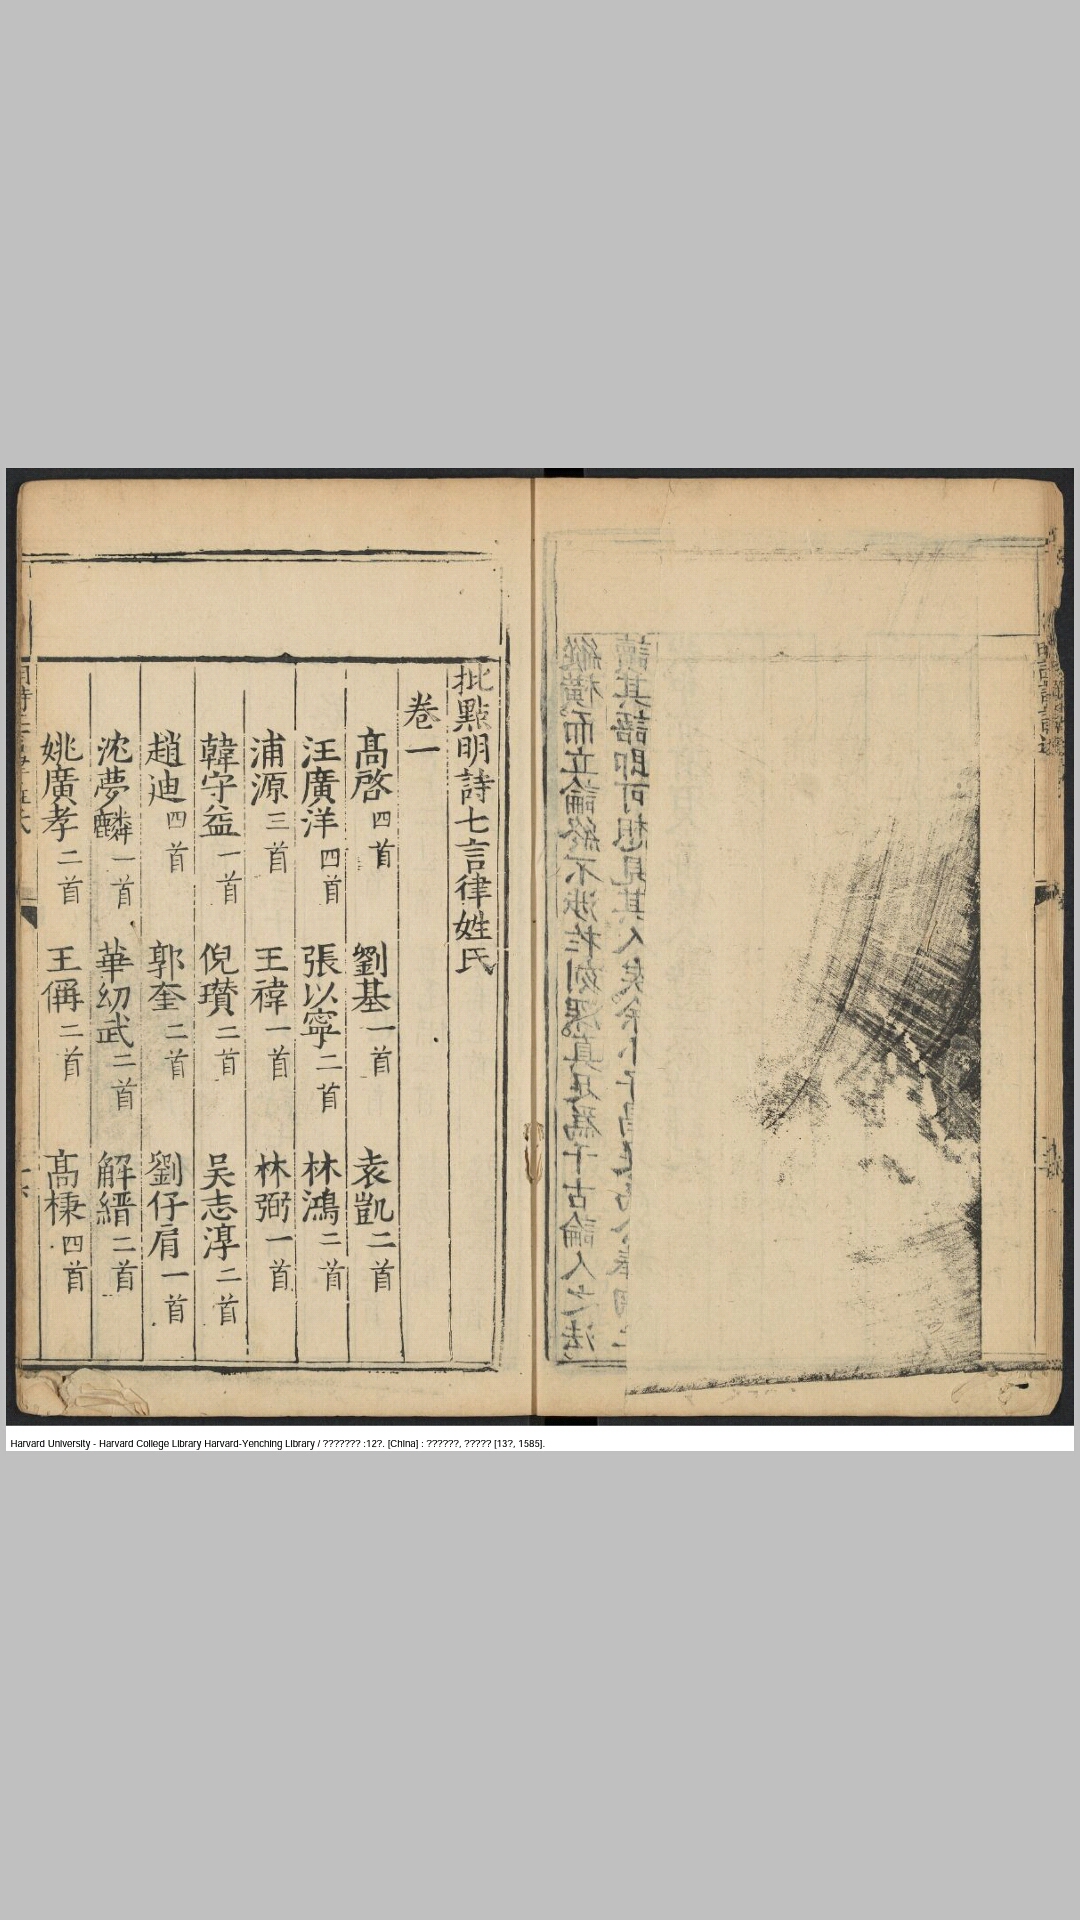 批點明詩七言律姓氏
卷一
高啓四首 劉基一首 袁凱二首
汪廣洋四首 張以寧二首 林鴻二首
浦源三首 王褘一首 林弼一首
韓守益一首 倪瓚二首 吴志淳二首
趙迪四首 郭奎二首 劉仔肩一首
沈夢麟一首 華幼武二首 解縉二首
姚廣孝二首 王偁二首 高棅四首
讀其語即可想見其人矣余小子
縱橫而立論終不涉於刻深真足爲千古論人之法
Harvard University - Harvard College Library Harvard-Yenching Library / ??????? :12?. [China] : ??????, ????? [13?, 1585].